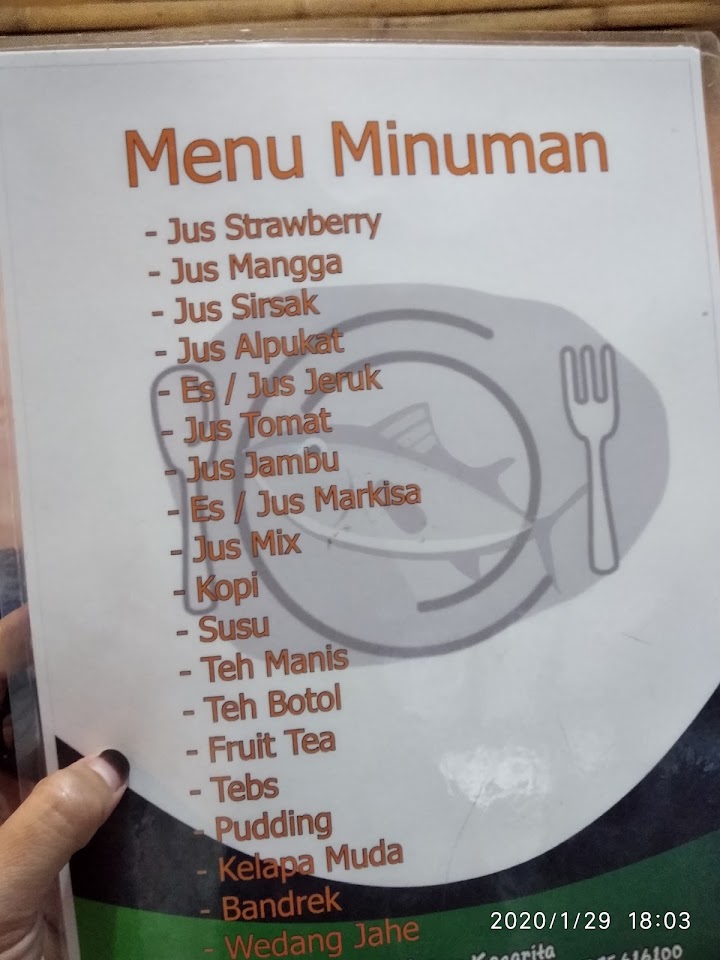 Menu Minuman
- Jus Strawberry
- Jus Mangga
- Jus Sirsak
- Jus Alpukat
- Es / Jus Jeruk
- Jus Tomat
- Jus Jambu
- Es / Jus Markisa
- Jus Mix
- Kopi
- Susu
- Teh Manis
- Teh Botol
- Fruit Tea
- Tebs
- Pudding
- Kelapa Muda
- Bandrek
- Wedang Jahe
2020/1/29 18:03